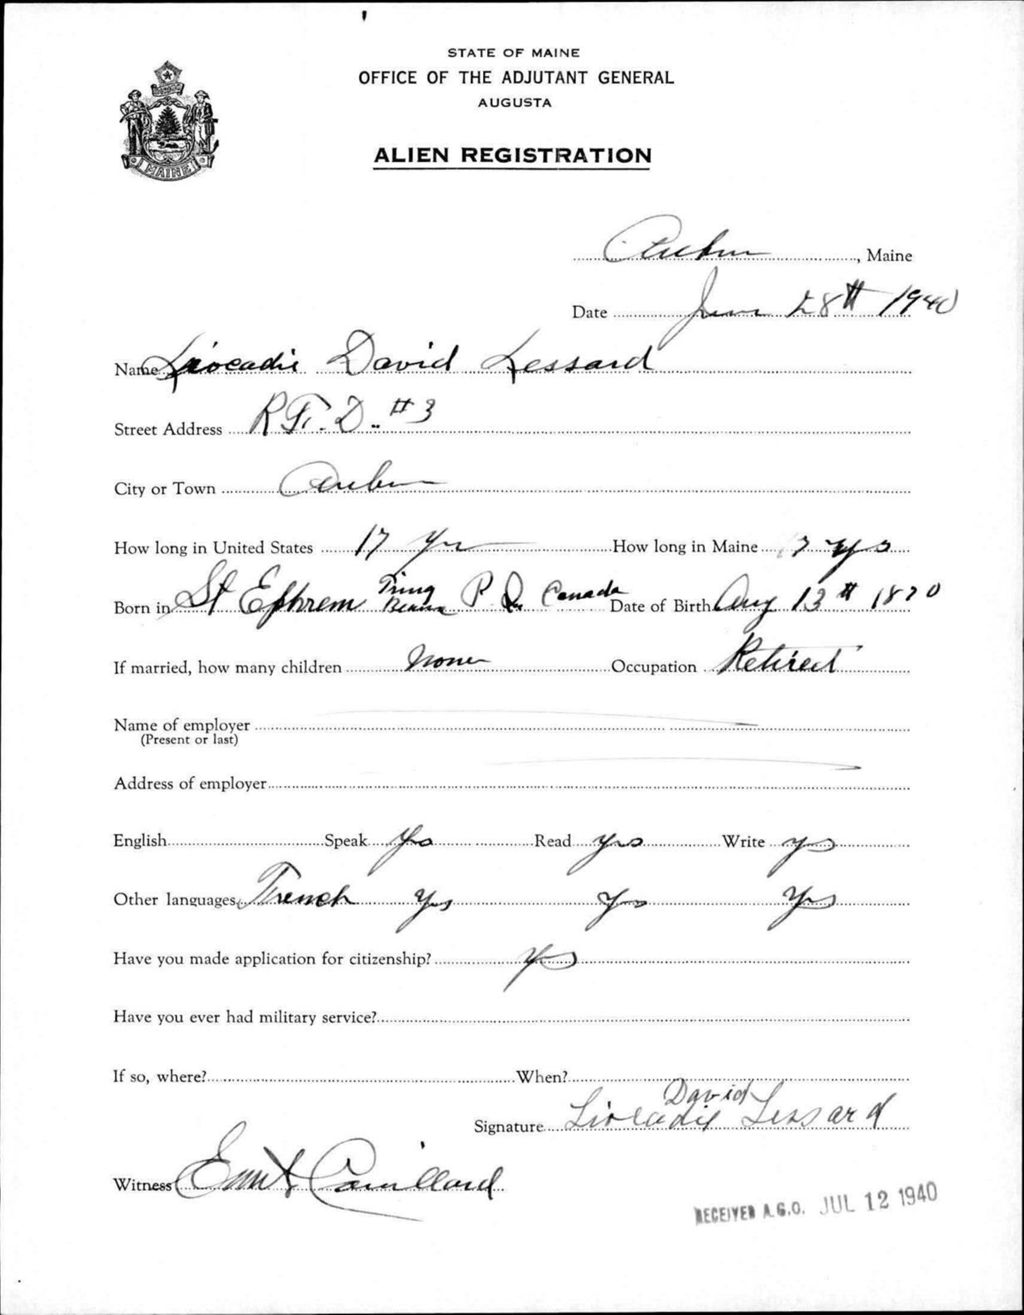 STATE OF MAINE
OFFICE OF THE ADJUTANT GENERAL
AUGUSTA
ALIEN REGISTRATION
MAINE
Auburn, Maine
Date June 28th 1940
Name Liocadie David Lessard
Street Address R.F.D. #3
City or Town Auburn
How long in United States 17 Yrs How long in Maine 7 yrs
Born in St Ephrem Tring Beauce P Q Canada Date of Birth Aug 13th 1870
If married, how many children None Occupation Retired
Name of employer
(Present or last)
Address of employer
English Speak Yes Read yes Write yes
Other languages French Yes Yes Yes
Have you made application for citizenship? Yes
Have you ever had military service?
If so, where? When?
David
Signature Liocadie Lessard
Witness
RECEIVED A.G.O. JUL 12 1940